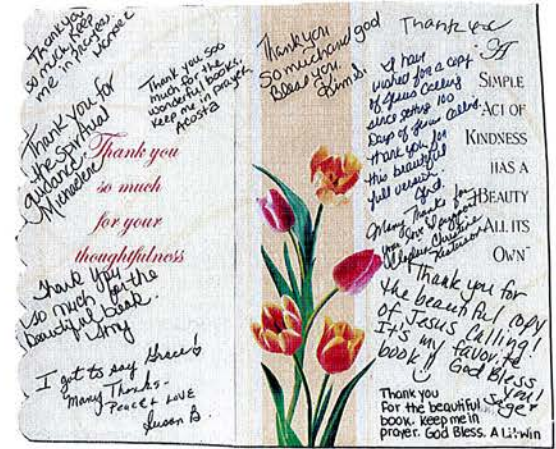 Thank you
so much, keep
me in prayers
Thank you soo
much for the
wonderful books,
keep me in prayer,
Acosta
Thank you for
the spiritual
guidance.
Michaelene
Thank you
so much
for your
thoughtfulness
Thank you
so much for the
beautiful book.
Amy
I got to say Grace!
Many Thanks-
Peace & Love
Susan B.
Thank you
So much and god
Bless you.
Kim S.
Thank you
I have
wished for a copy
of Jesus Calling
since getting 100
Days of Jesus Calling.
Thank you for
this beautiful
full version.
Many Thanks for
your love & support
Christine
A
SIMPLE
ACT OF
KINDNESS
HAS A
BEAUTY
ALL ITS
OWN
Thank you for
the beautiful copy
of Jesus Calling!
It's my favorite
book!!
God Bless
you!
Sager
Thank you
For the beautiful
book. keep me in
prayer. God Bless. A Litwin